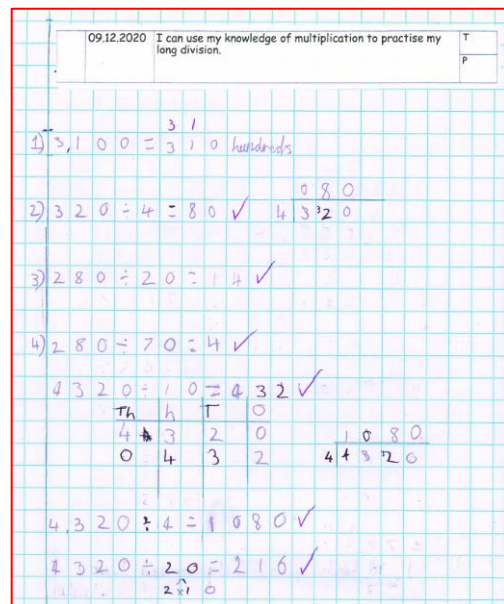 09.12.2020 I can use my knowledge of multiplication to practise my long division. T
P
3 1
1) 3,100 = 310 hundreds
080
2) 320 ÷ 4 = 80 ✓ 4 3 ³2 0
3) 280 ÷ 20 = 14 ✓
4) 280 ÷ 70 = 4 ✓
4320 ÷ 10 = 432 ✓
Th h T O
4 3 2 0 1080
0 4 3 2 4 4 3 ³2 0
4,320 ÷ 4 = 1080 ✓
4320 ÷ 20 = 216 ✓
2 x 10